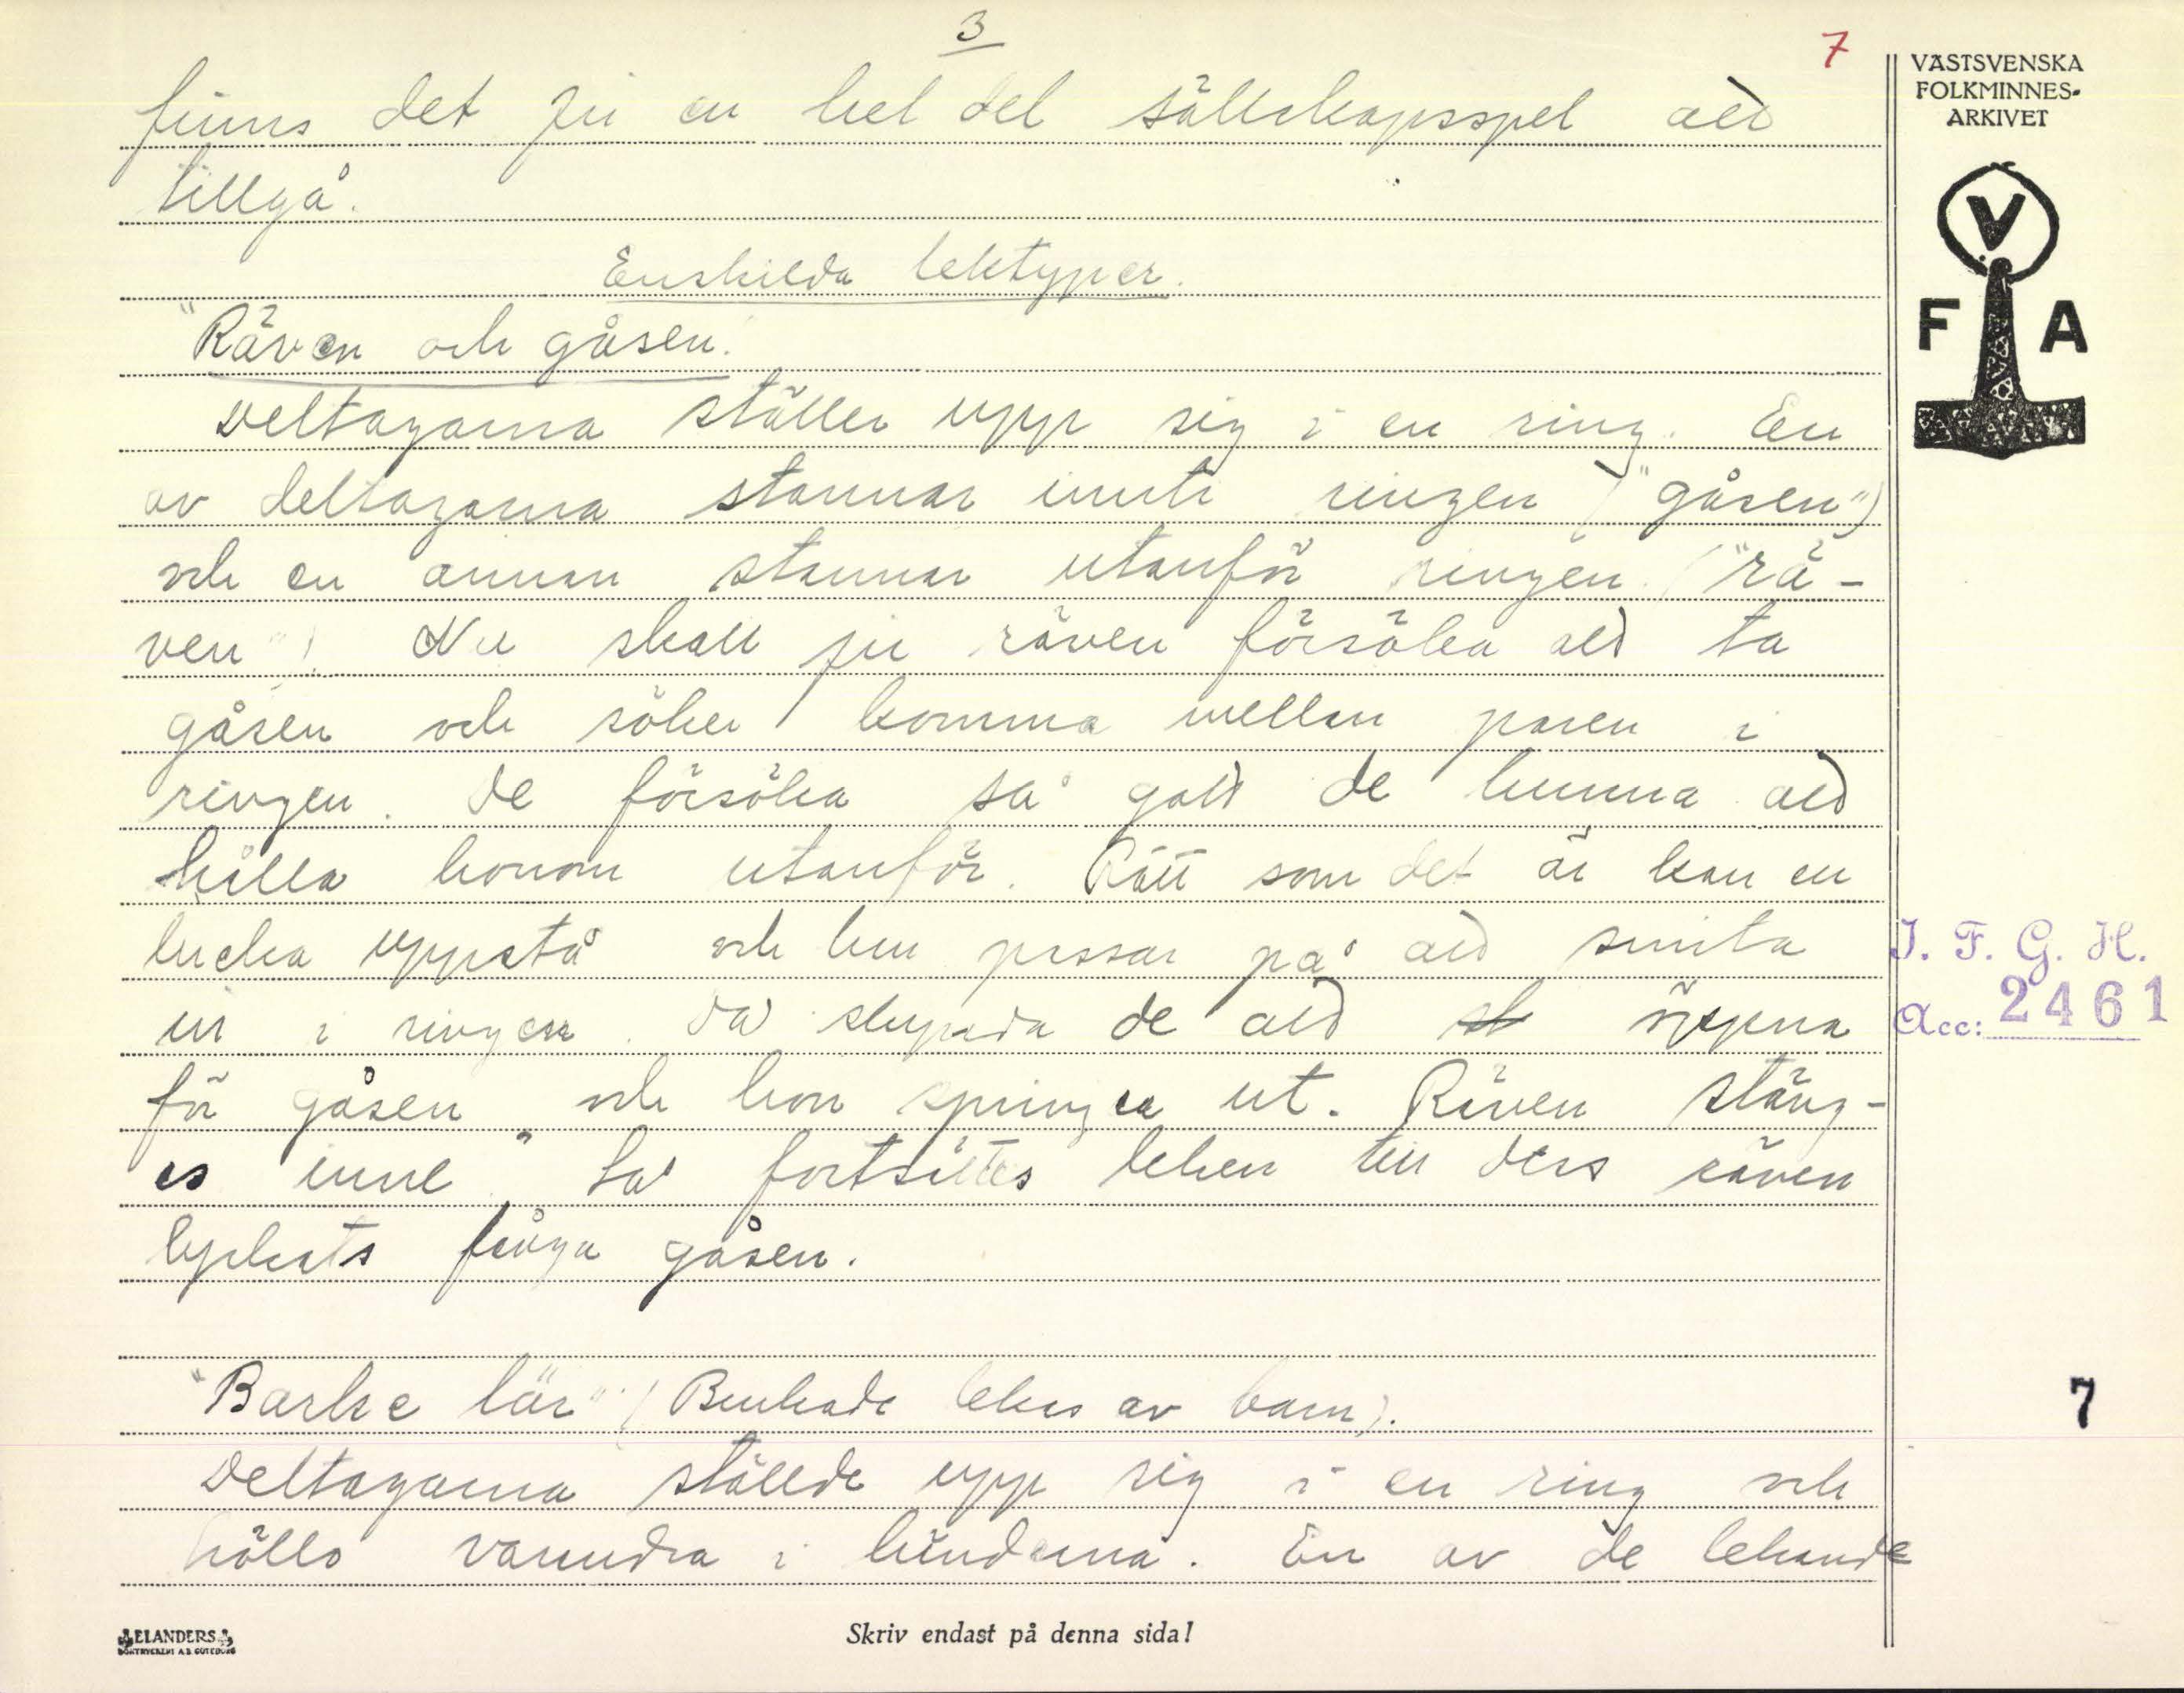 3
7
finns det ju en hel del sällskapsspel att
tillgå.
Enskilda lektyper.
"Räven och gåsen.
Deltagarna ställer upp sig i en ring. En
av deltagarna stannar inuti ringen ("gåsen")
och en annan stannar utanför ringen ("rä-
ven"). Nu skall ju räven försöka att ta
gåsen och söker komma mellan paren i
ringen. De försöka så gott de kunna att
hålla honom utanför. Rätt som det är kan en
lucka uppstå och han passar på att smita
in i ringen. Då skynda de att öppna
för gåsen och hon springer ut. Räven stäng-
es inne. Så fortsättes leken till dess räven
lyckats fånga gåsen.
"Barke lär" ( lekes av barn).
Deltagarna ställde upp sig i en ring och
höllo varandra i händerna. En av de lekande
VÄSTSVENSKA
FOLKMINNES-
ARKIVET
V
F A
I. F. G. H.
Acc: 2461
7
ELANDERS
BOKTRYCKERI A.B. GÖTEBORG
Skriv endast på denna sida!